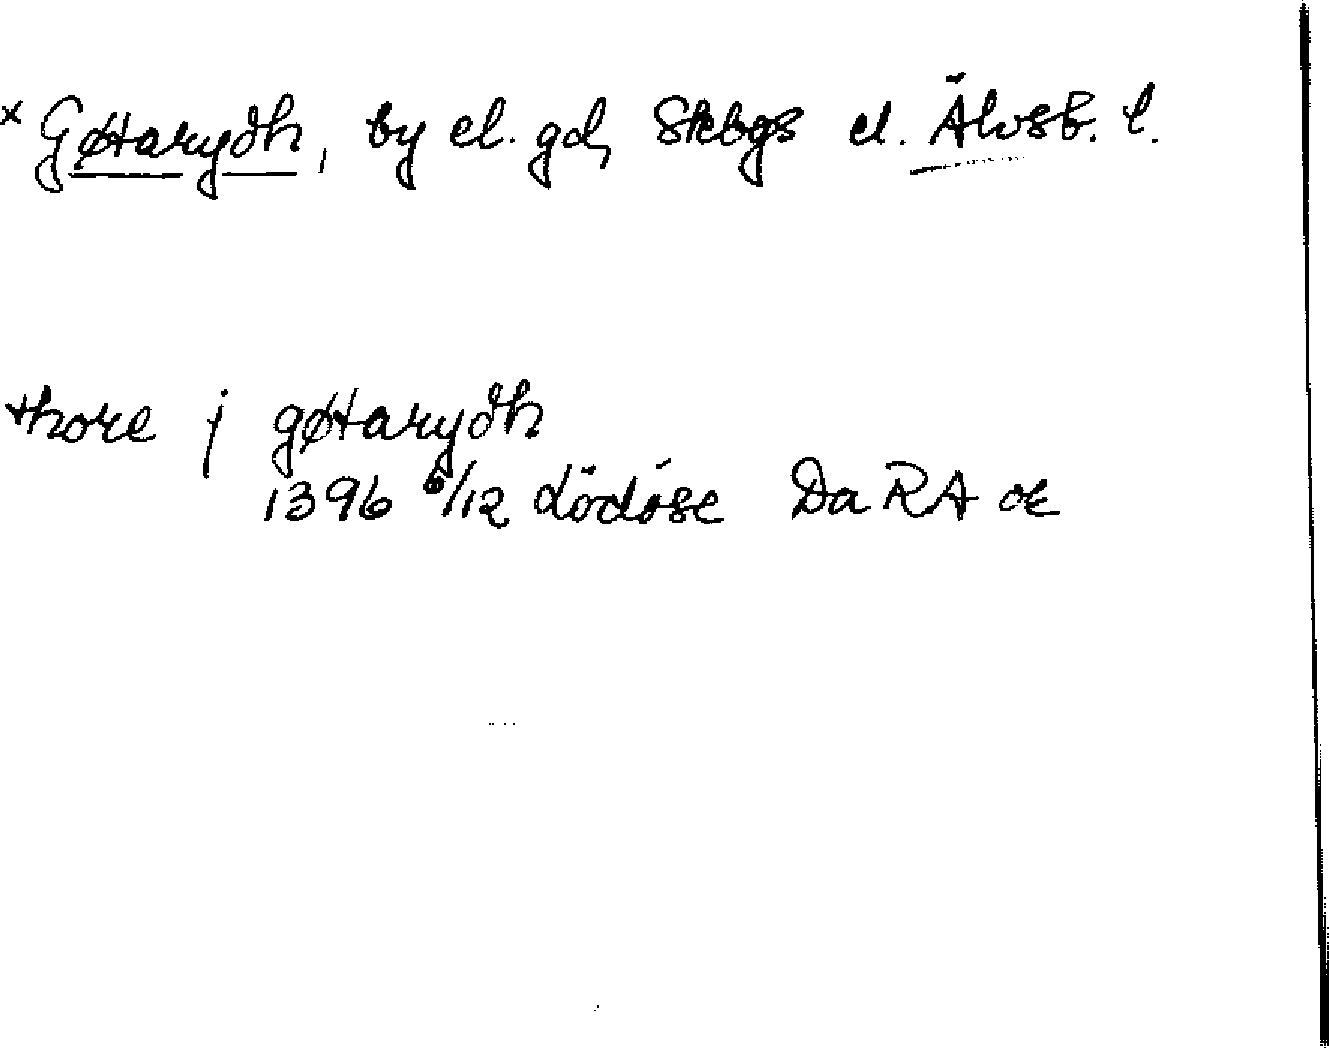 × Gøtarydh, by el. gd, Skbgs el. Älvsb. l.
thore j gøtarydh
1396 6/12 Lödöse Da RA or